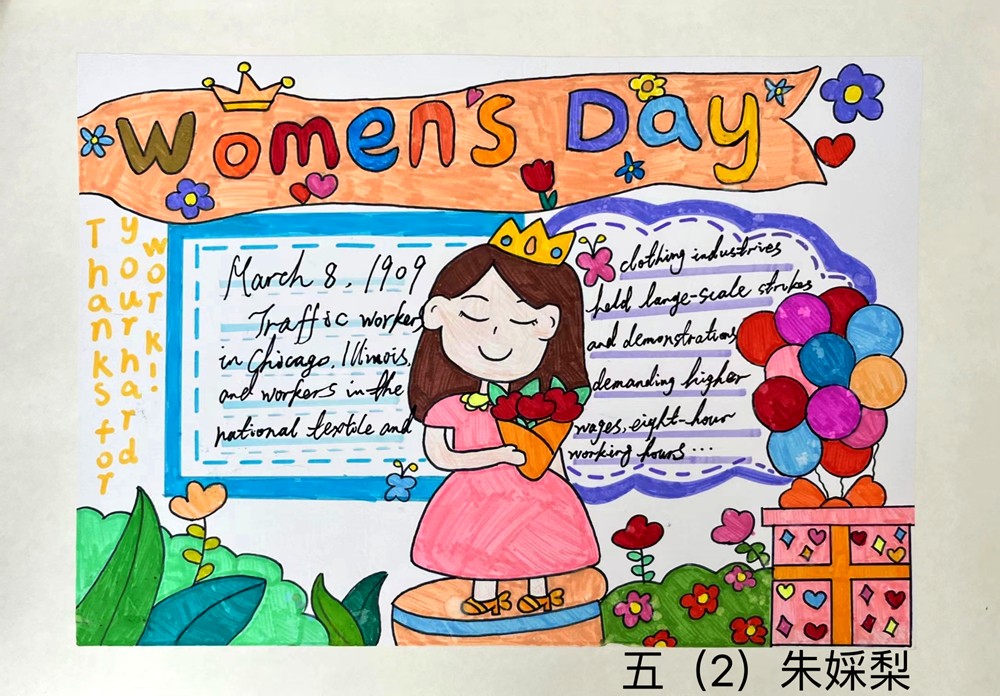 Women's Day
Thanks for
your hard
work!
March 8, 1909
Traffic workers
in Chicago, Illinois,
and workers in the
national textile and
clothing industries
held large-scale strikes
and demonstrations
demanding higher
wages, eight-hour
working hours...
五（2）朱婇梨